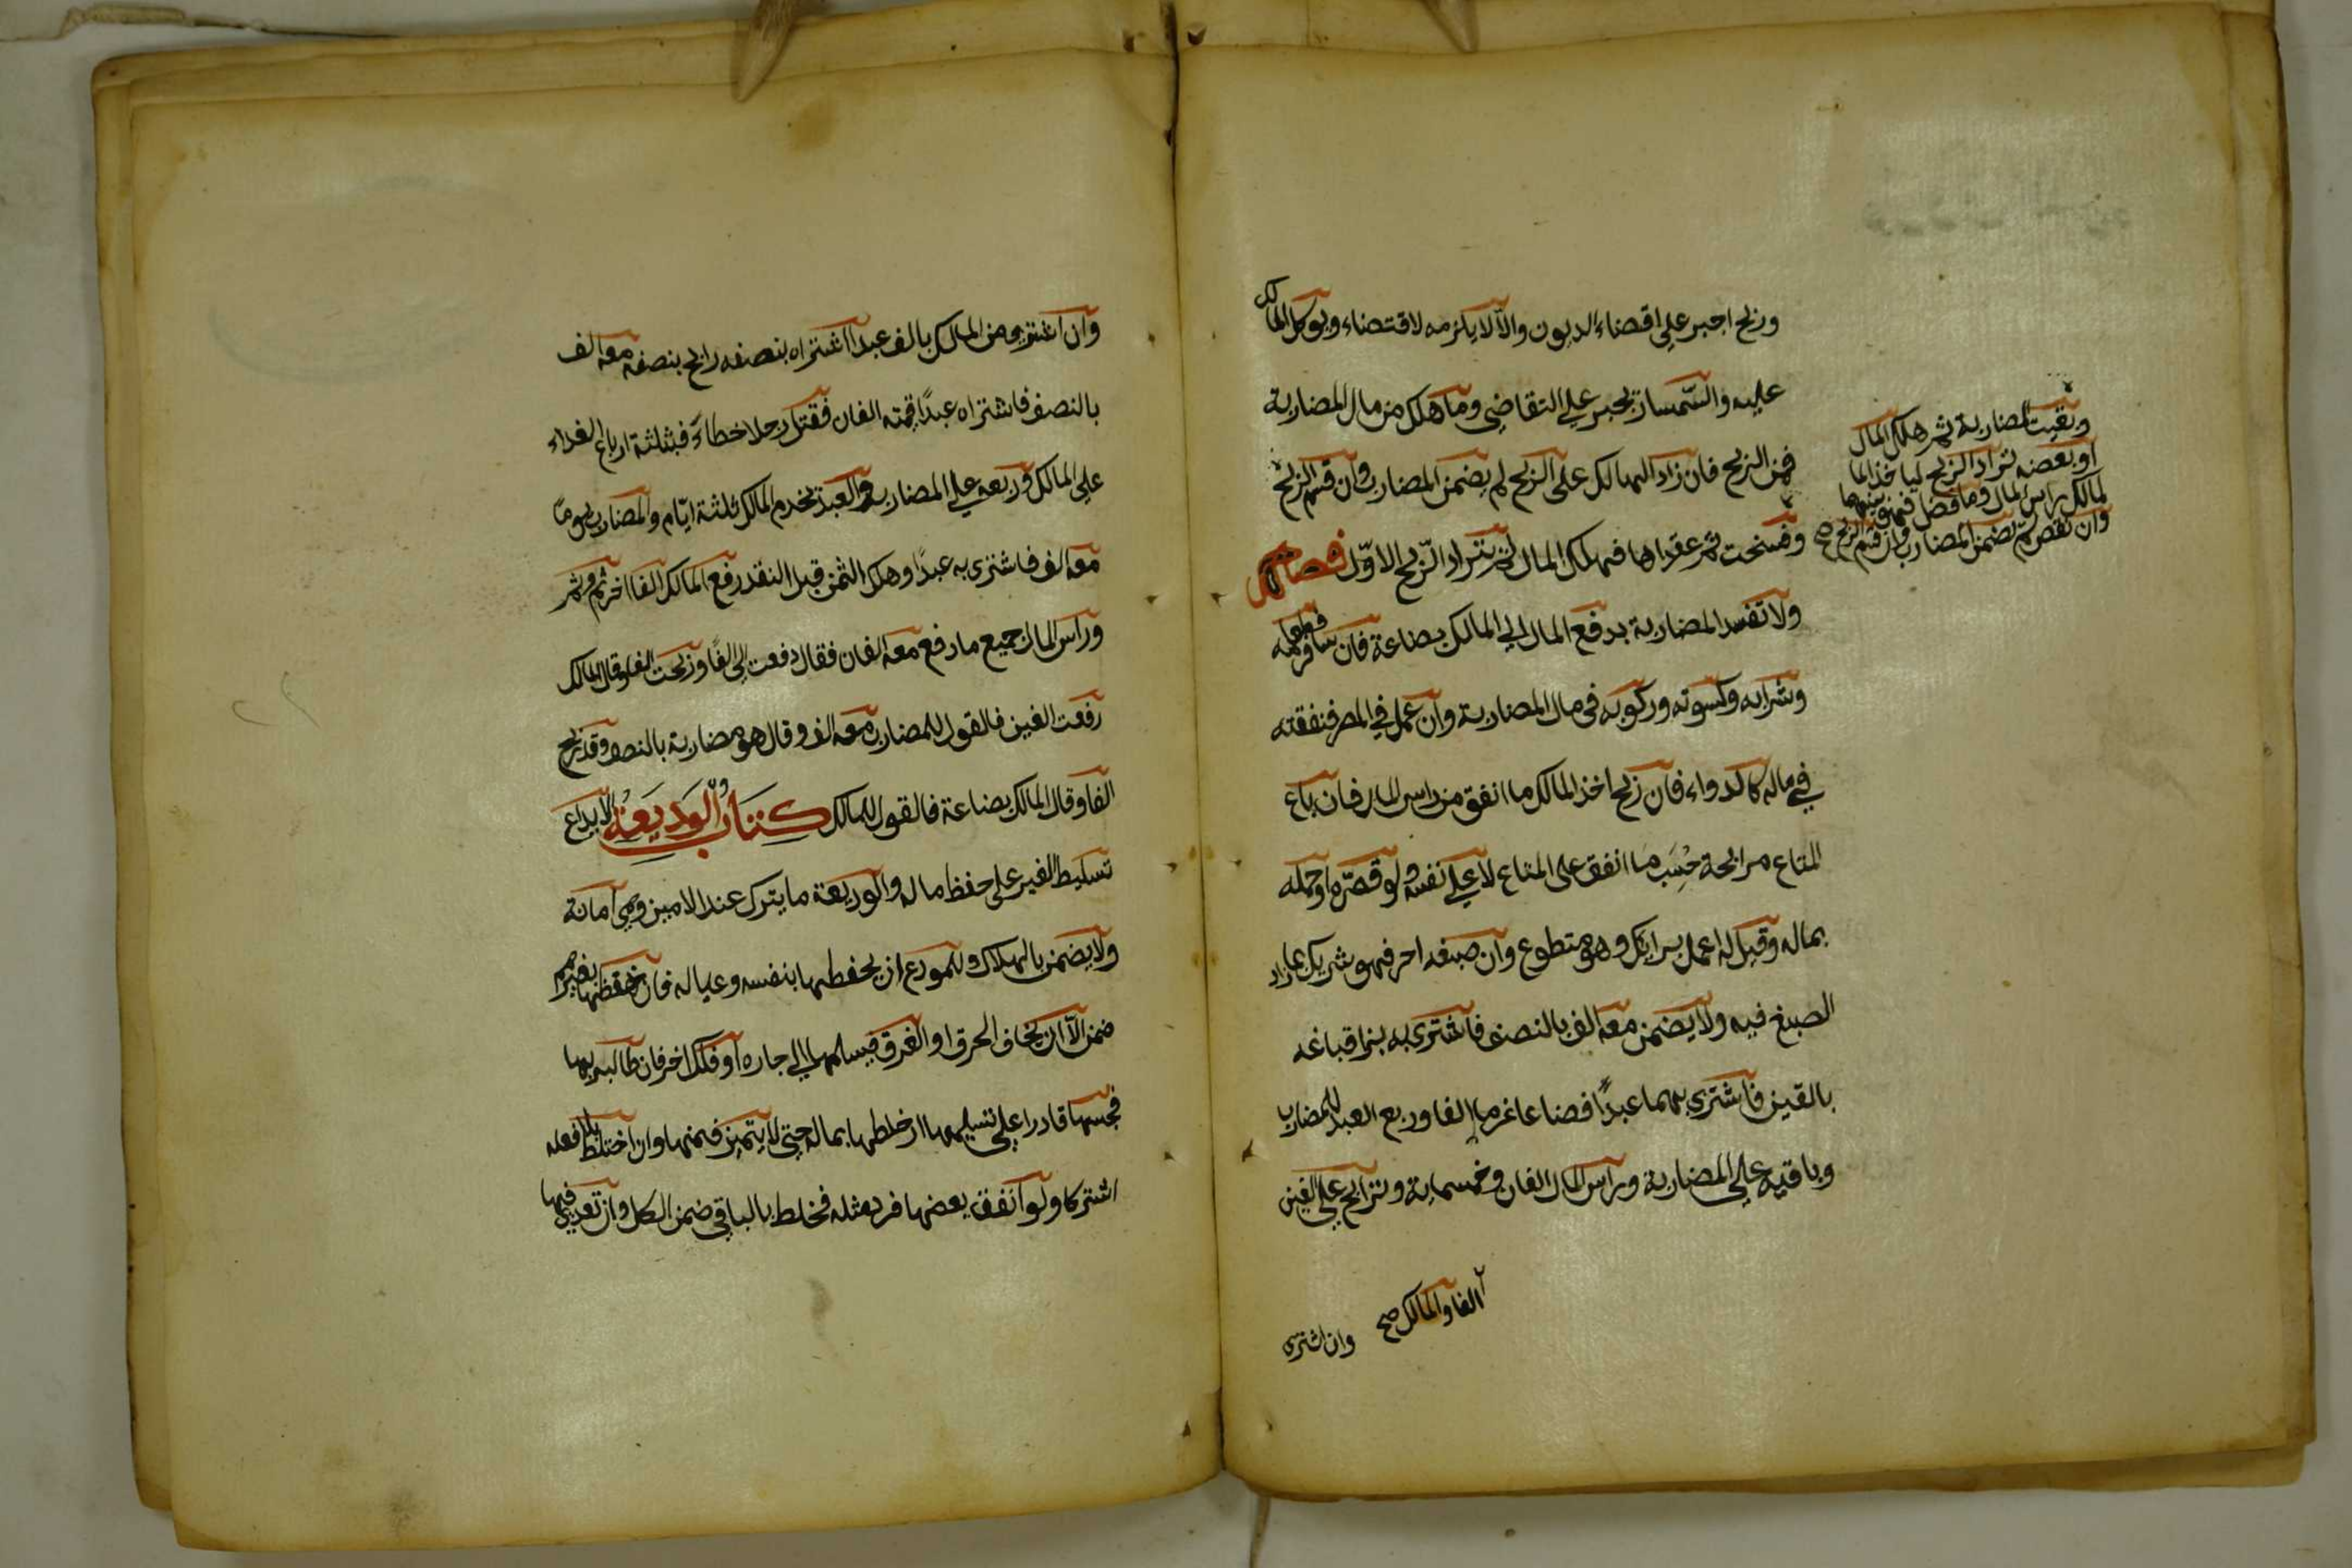 وربح اجبر على اقتضاء الديون والا لا يلزمه لاقتضاء ويوكل المالك
عليه والسمسار يجبر على التقاضي وما هلك من مال المضاربة
فمن الربح فان زاد الهالك على الربح لم يضمن المضارب وان قسم الربح
وبقيت المضاربة ثم هلك المال
او بعضه تراد الربح لياخذ الما
لمالك راس المال وما فضل فهو بينهما
وان نقص لم يضمن المضارب وان قسم الربح صح
وفسخت ثم عقداها فهلك المال لم يتراد الربح الاول فصل
ولا تفسد المضاربة بدفع المال الى المالك بضاعة فان سافر فطعامه
وشرابه وكسوته وركوبه في مال المضاربة وان عمل في المصر فنفقته
في ماله كالدواء فان ربح اخذ المالك ما انفق من راس المال فان باع
المتاع مرابحة حسب ما انفق على المتاع لا على نفسه ولو قصره او حمله
بماله وقيل له اعمل برايك وهو متطوع وان صبغه احمر فهو شريك بما زاد
الصبغ فيه ولا يضمن معه الف بالنصف فاشترى به بزا فباعه
بالفين فاشترى بهما عبدا فضاعا غرما الفا وربع العبد للمضارب
وباقيه على المضاربة وراس المال الفان وخمسماية ويرابح على الفين
الفا والمالك صح
وان اشترى
وان اشترى من المالك بالف عبدا اشتراه بنصفه رابح بنصفه معه الف
بالنصف فاشتراه عبدا قيمته الفان فقتل رجلا خطاء فثلثة ارباع الفداء
على المالك وربعه على المضارب والعبد يخدم المالك ثلثة ايام والمضارب يوما
معه الف فاشترى به عبدا وهلك الثمن قبل النقد دفع المالك الفا اخر ثم وثم
وراس المال جميع ما دفع معه الفان فقال دفعت الى الفا وربحت الفا وقال المالك
دفعت الفين فالقول للمضارب معه الف وقال هو مضاربة بالنصف وقد ربح
الفا وقال المالك بضاعة فالقول للمالك كتاب الوديعة الايداع
تسليط الغير على حفظ ماله والوديعة ما يترك عند الامين وهي امانة
ولا يضمن بالهلاك وللمودع ان يحفظها بنفسه وعياله فان حفظها بغيرهم
ضمن الا ان يخاف الحرق او الغرق فيسلمها الى جاره او فلك اخر فان طالبه بها
فحبسها قادرا على تسليمها او خلطها بماله حتى لا يتميز ضمنها وان اختلط بلا فعله
اشتركا ولو انفق بعضها فرد مثله فخلط بالباقي ضمن الكل وان تعدى فيها